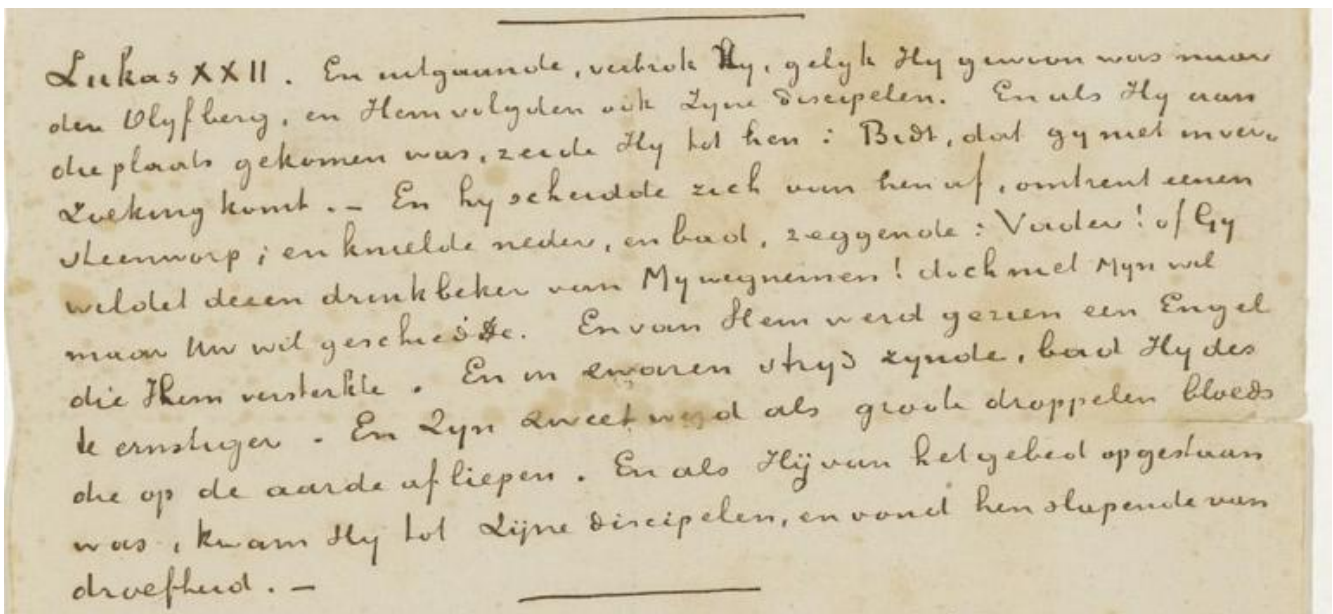 Lukas XXII. En uitgaande, vertrok Hy, gelyk Hy gewoon was naar
den Olyfberg, en Hem volgden ook Zyne discipelen. En als Hy aan
die plaats gekomen was, zeide Hy tot hen: Bidt, dat gy niet in ver-
zoeking komt. – En hy scheidde zich van hen af, omtrent eenen
steenworp; en knielde neder, en bad, zeggende: Vader! of Gy
wildet dezen drinkbeker van My wegnemen! doch niet Myn wil
maar Uw wil geschiedde. En van Hem werd gezien een Engel
die Hem versterkte. En in zwaren stryd zynde, bad Hy des
te ernstiger. En Zyn zweet werd als groote droppelen bloeds
die op de aarde afliepen. En als Hij van het gebed opgestaan
was, kwam Hy tot Zijne discipelen, en vond hen slapende van
droefheid. –